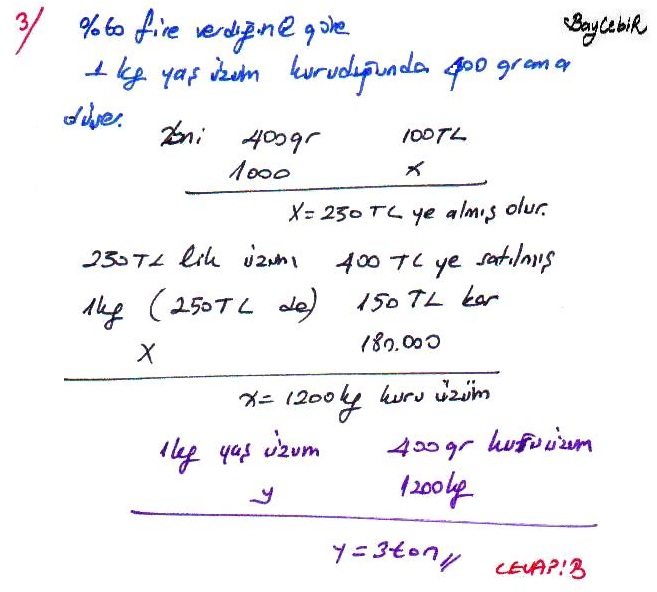 3/ %60 fire verdiğine göre BayCebiR
1 kg yaş üzüm kuruduğunda 400 grama
düşer.
Yani 400gr 100TL
1000 x
X=250 TL ye almış olur.
250TL lik üzümü 400 TL ye satılmış
1kg (250TL de) 150 TL kar
X 180.000
x=1200kg kuru üzüm
1kg yaş üzüm 400gr kuru üzüm
y 1200kg
y=3ton//
CEVAP:B